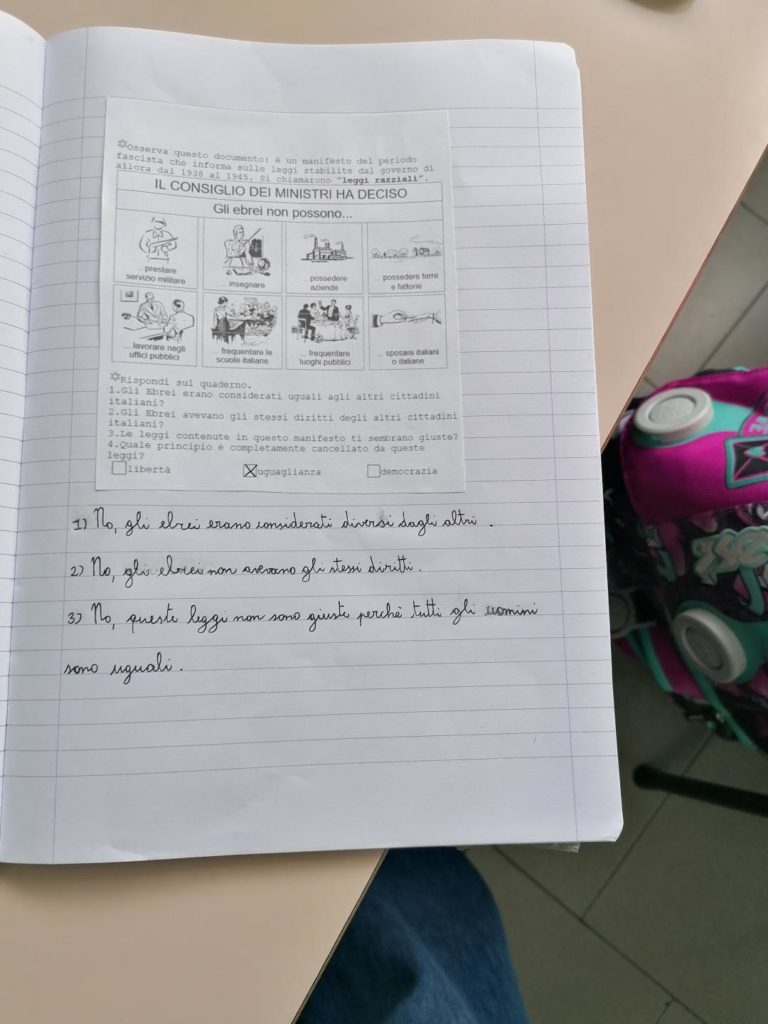 Osserva questo documento: è un manifesto del periodo
fascista che informa sulle leggi stabilite dal governo di
allora dal 1938 al 1945. Si chiamarono "leggi razziali".
IL CONSIGLIO DEI MINISTRI HA DECISO
Gli ebrei non possono...
... prestare
servizio militare
... insegnare
... possedere
aziende
... possedere terre
e fattorie
... lavorare negli
uffici pubblici
... frequentare le
scuole italiane
... frequentare
luoghi pubblici
... sposare italiani
o italiane
Rispondi sul quaderno.
1.Gli Ebrei erano considerati uguali agli altri cittadini
italiani?
2.Gli Ebrei avevano gli stessi diritti degli altri cittadini
italiani?
3.Le leggi contenute in questo manifesto ti sembrano giuste?
4.Quale principio è completamente cancellato da queste
leggi?
libertà
uguaglianza
democrazia
1) No, gli ebrei erano considerati diversi dagli altri.
2) No, gli ebrei non avevano gli stessi diritti.
3) No, queste leggi non sono giuste perchè tutti gli uomini
sono uguali.